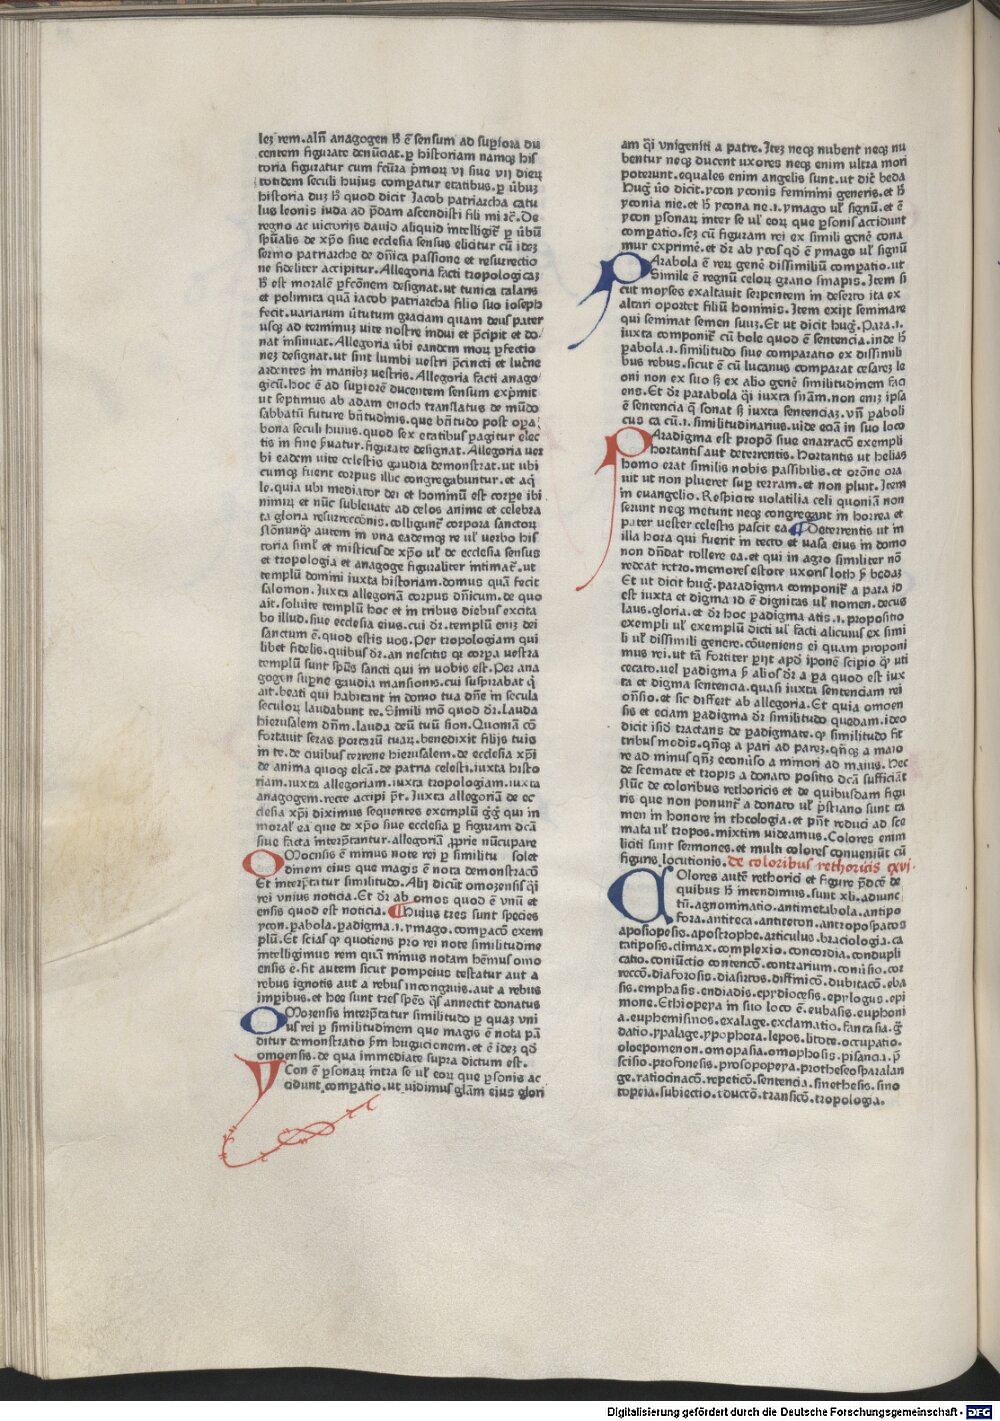 lez rem. alr̄ anagogen ł ē sensum ad suꝑiora du
centem figurate denūciat. ꝑ historiam namqꝫ his
toria figuratur cum fcūra ṗmoꝝ vi siue vii dieꝝ
totidem seculi huius compatur etatibus. ꝑ ūbuꝫ
historia duꝫ ł quod dicit Jacob patriarcha catu
lus leonis iuda ad p̄dam ascendisti fili mi ⁊c̄. De
regno ac victorijs dauid aliquid intelligit̄ ꝑ ūbū
spūalis de xp̄o siue ecclesia sensus elicitur cū ideꝫ
sermo patriarche de dn̄ica passione et resurrectio
ne fideliter accipitur. Allegoria facti tropologicaꝫ
ł est moralē ꝑfc̄onem designat. ut tunica talaris
et polimita quā iacob patriarcha filio suo ioseph
fecit. uariarum ūtutum graciam quam deus pater
usqꝫ ad terminuꝫ uite nostre indui et p̄cipit et do
nat insinuat. Allegoria ūbi eandem moꝝ ꝑfectio
neꝫ designat. ut sint lumbi uestri p̄cincti et lucˀne
ardentes in manibꝫ uestris. Allegoria facti anago
gicū. hoc ē ad suꝑiorē ducentem sensum expͥmit
ut septimus ab adam enoch translatus de mūdo
sabbatū future bn̄tudīnis. que bn̄tudo post oꝑa
bona seculi huius. quod sex etatibus ꝑagitur elec
tis in fine ẜuatur. figurate designat. Allegoria uer
bi eadem uite celestis gaudia demonstrat. ut ubi
cumqꝫ fuerit corpus illic congregabuntur. et aq̄
le. quia ubi mediator dei et hominū est corꝑe ibi
nimiꝝ et nūc subleuate ad celos anime et celebra
ta gloria resurrecc̄onis. colligunt̄ corpora sanctoꝝ
Nōnunqˀ autem in vna eademqꝫ re uł uerbo his
toria simł et misticus de xp̄o uł de ecclesia sensus
et tropologia et anagoge figuraliter intimat̄. ut
templū domini iuxta historiam. domus quā fecit
salomon. Juxta allegoriā corpus dn̄icum. de quo
ait. soluite templū hoc et in tribus diebus excita
bo illud. siue ecclesia eius. cui dr̄. templū eniꝫ dei
sanctum ē. quod estis uos. Per tropologiam qui
libet fidelis. quibus dr̄. an nescitis qꝛ corꝑa uestra
templū sunt spūs sancti qui in uobis est. Per ana
gogen suꝑne gaudia mansionis. cui suspirabat q̄
ait. beati qui habitant in domo tua dn̄e in secula
seculoꝝ laudabunt te. Simili mō quod dr̄. Lauda
hierusalem dn̄m. lauda deū tuū sion. Quoniā cō
fortauit seras portarū tuaꝝ. benedixit filijs tuis
in te. de ciuibus terrene hierusalem. de ecclesia xp̄i
de anima quoqꝫ elc̄ā. de patria celesti. iuxta histo
riam. iuxta allegoriam. iuxta tropologiam. iuxta
anagogem. recte accipi p̄t. Juxta allegoriā de ec
clesia xp̄i diximus sequentes exemplū gg̃ qui in
morał ea que de xp̄o siue ecclesia ꝑ figuram dc̄ā
siue facta interp̄tantur. allegoriā ꝓprie nūcupare
OMoensis ē minus note rei ꝑ similitu solet
dinem eius que magis ē nota demonstracō
Et interp̄tatur similitudo. Alij dicūt omozensis q̄i
rei vnius noticia. Et dr̄ ab omos quod ē vnū et
ensis quod est noticia. Huius tres sunt species
ycon. ꝑabola. ꝑadigma. i. ymago. compacō exem
plū. Et scias qꝛ quotiens pro rei note similitudine
intelligimus rem quā minus notam hēmus omo
ensis ē. fit autem sicut pompeius testatur aut a
rebus ignotis aut a rebus incongruis. aut a rebus
imꝑibus. et hec sunt tres spēs q̄s annectit donatus
OMozensis interp̄tatur similitudo ꝑ quaꝫ vni
us rei ꝑ similitudinem que magis ē nota pā
ditur demonstratio ẜm hugucionem. et ē ideꝫ qd̄
omoensis. de qua immediate supra dictum est.
YCon ē ꝑsonaꝝ intra se uł eoꝝ que ꝑsonis ac
cidunt comꝑatio. ut vidimus glām eius glori
am q̄i vnigeniti a patre. Iteꝫ neqꝫ nubent neqꝫ nu
bentur neqꝫ ducent uxores neqꝫ enim ultra mori
poterunt. equales enim angelis sunt. ut dic̄ beda
hug̃ ūo dicit. ycon yconis feminini generis. et ł
yconia nie. et ł ycona ne. i. ymago uł signū. et ē
ycon ꝑsonaꝝ inter se uł eoꝝ que ꝑsonis accidunt
comꝑatio. seꝫ cū figuram rei ex simili genē cona
mur exprimē. et dr̄ ab ycos qd̄ ē ymago uł signū
PArabola ē reꝝ genē dissimiliū comꝑatio. ut
Simile ē regnū celoꝝ grano sinapis. Item si
cut moyses exaltauit serpentem in deserto ita ex
altari oportet filiū hominis. Item exijt seminare
qui seminat semen suuꝫ. Et ut dicit hug̃. Para. i.
iuxta componit̄ cū bole quod ē sentencia. inde ł
ꝑabola. i. similitudo siue comparatio ex dissimili
bus rebus. sicut ē cū lucanus comparat cesareꝫ le
oni non ex suo ẜ ex alio genē similitudinem faci
ens. Et dr̄ parabola q̄i iuxta sn̄iam. non eniꝫ ipsa
ē sentencia q̄ sonat ẜ iuxta sentenciaꝫ. vn̄ ꝑaboli
cus ca cū. i. similitudinarius. uide eciā in suo loco
PAradigma est propō siue enarracō exempli
hortantis aut deterrentis. Hortantis ut helias
homo erat similis nobis passibilis. et orōne ora
uit ut non plueret suꝑ terram. et non pluit. Item
in euangelio. Respicite uolatilia celi quoniā non
serunt neqꝫ metunt neqꝫ congregant in horrea et
pater uester celestis pascit ea Deterrentis ut in
illa hora qui fuerit in tecto et uasa eius in domo
non dn̄dat tollere ea. et qui in agro similiter nō
redeat retro. memores estote uxoris loth ẜ bedaꝫ
Et ut dicit hug̃. paradigma componit̄ a para id
est iuxta et digma id ē dignitas uł nomen. decus
laus. gloria. et dr̄ hoc ꝑadigma atis. i. propositio
exempli uł exemplū dicti uł facti alicuius ex simi
li uł dissimili genere. cōueniens ei quam proponi
mus rei. ut tā fortiter ꝑijt apd̄ iponē scipio q̄ uti
cecato. uel ꝑadigma ẜ alios dr̄ a ꝑa quod est iux
ta et digma sentencia. quasi iuxta sentenciam rei
on̄sio. et sic differt ab allegoria. Et quia omoen
sis et eciam ꝑadigma dr̄ similitudo quedam. ideo
dicit isid̄ tractans de ꝑadigmate. qꝛ similitudo fit
tribus modis. qn̄qꝫ a pari ad pareꝫ. qn̄qꝫ a maio
re ad minus qn̄qꝫ econūso a minori ad maius. Hec
de scemate et tropis a donato positis dc̄ā sufficiāt
Nūc de coloribus rethoricis et de quibusdam figu
ris que non ponunt̄ a donato uł p̄sciano sunt ta
men in honore in theologia. et pn̄t reduci ad sce
mata uł tropos. mixtim uideamus. Colores enim
liciti sunt sermones. et multi colores conueniūt cū
figuris locutionis. de coloribus rethoricis cxvi.
COlores autē rethorici et figure p̄dcē de
quibus ł intendimus. sunt xli. adiunc
tū. agnominatio. antimetabola. antipo
fora. antiteca. antiteton. antropospatos
aposiopesis. apostrophe. articulus. braciologia. ca
tatiposis. climax. complexio. concordia. condupli
catio. coniūctio contencō. contrarium. conūsio. cor
reccō. diaforosis. diasirtos. diffinicō. dubitacō. eba
sis. emphasis. endiadis. epydiocesis. epylogus. epi
mone. Ethiopeya in suo loco ē. eubasis. euphoni
a. euphemisinos. exalage. exclamatio. fantasia. g̃
datio. ypalage. ypophora. lepos. litote. occupatio.
oloepomenon. omopasia. omophosis. pisancia. p̄
scisio. profonesis. prosopopeya. protheseosparalan
ge. ratiocinacō. repeticō. sentencia. sinethesis. sino
topeia. subiectio. tduccō. transicō. tropologia.
Digitalisierung gefördert durch die Deutsche Forschungsgemeinschaft - DFG